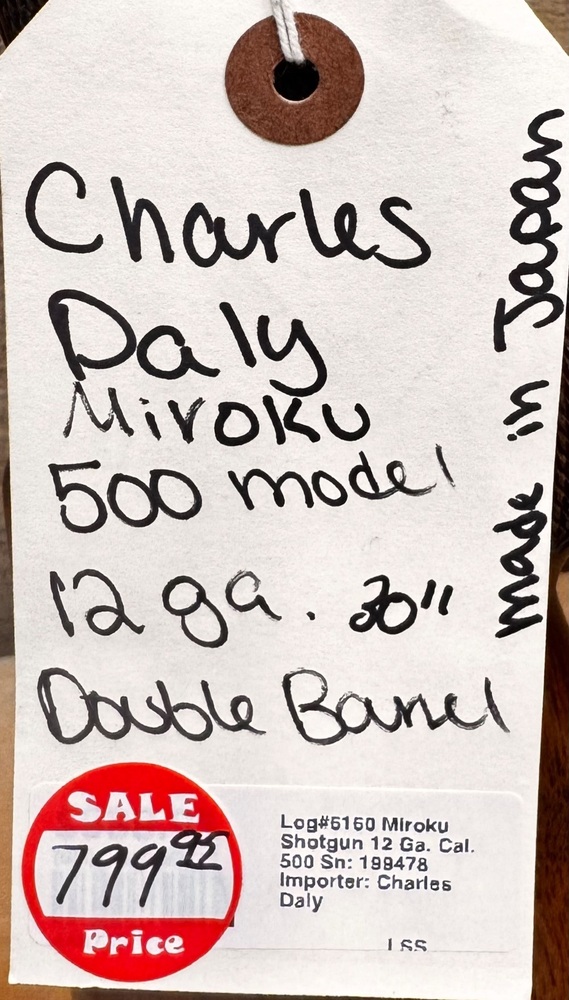 Charles
Daly
Miroku
500 model
12 ga. 30"
Double Barrel
made in Japan
SALE
799.95
Price
Log#5160 Miroku
Shotgun 12 Ga. Cal.
500 Sn: 198478
Importer: Charles
Daly